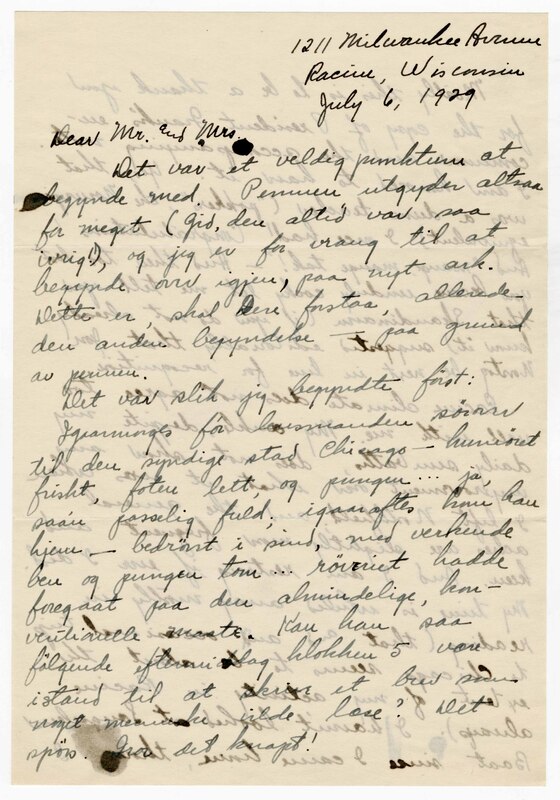 1211 Milwaukee Avenue
Racine, Wisconsin
July 6, 1929
Dear Mr. and Mrs.
Det var et veldig punktum at
begynde med. Pennen utgyder altsaa
for meget (Gid, den altid var saa
ivrig!), og jeg er for vrang til at
begynde om igjen, paa nyt ark.
Dette er, skal Dere forstaa, allerede
den anden begyndelse — paa grund
av pennen.
Det var slik jeg begyndte først:
Igaarmorges for husmanden sørover
til den syndige stad Chicago — humöret
friskt, foten lett, og pungen ... ja,
saan passelig fuld; igaaraftes kom han
hjem — bedrövet i sind, med verkende
ben og pungen tom ... röveriet hadde
foregaat paa den almindelige, kon-
ventionelle maate. Kan han saa
fölgende eftermiddag klokken 5 være
istand til at skrive et brev som
noget menneske vilde læse? Det
spörs. Tror det knapt!